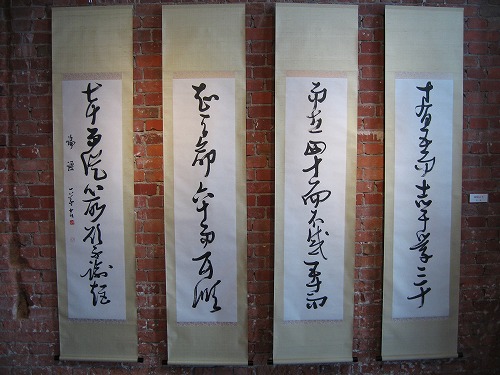 十有五而志于學三十
而立四十而不惑五十而
知天命六十而耳順
七十而從心所欲不踰矩
論語